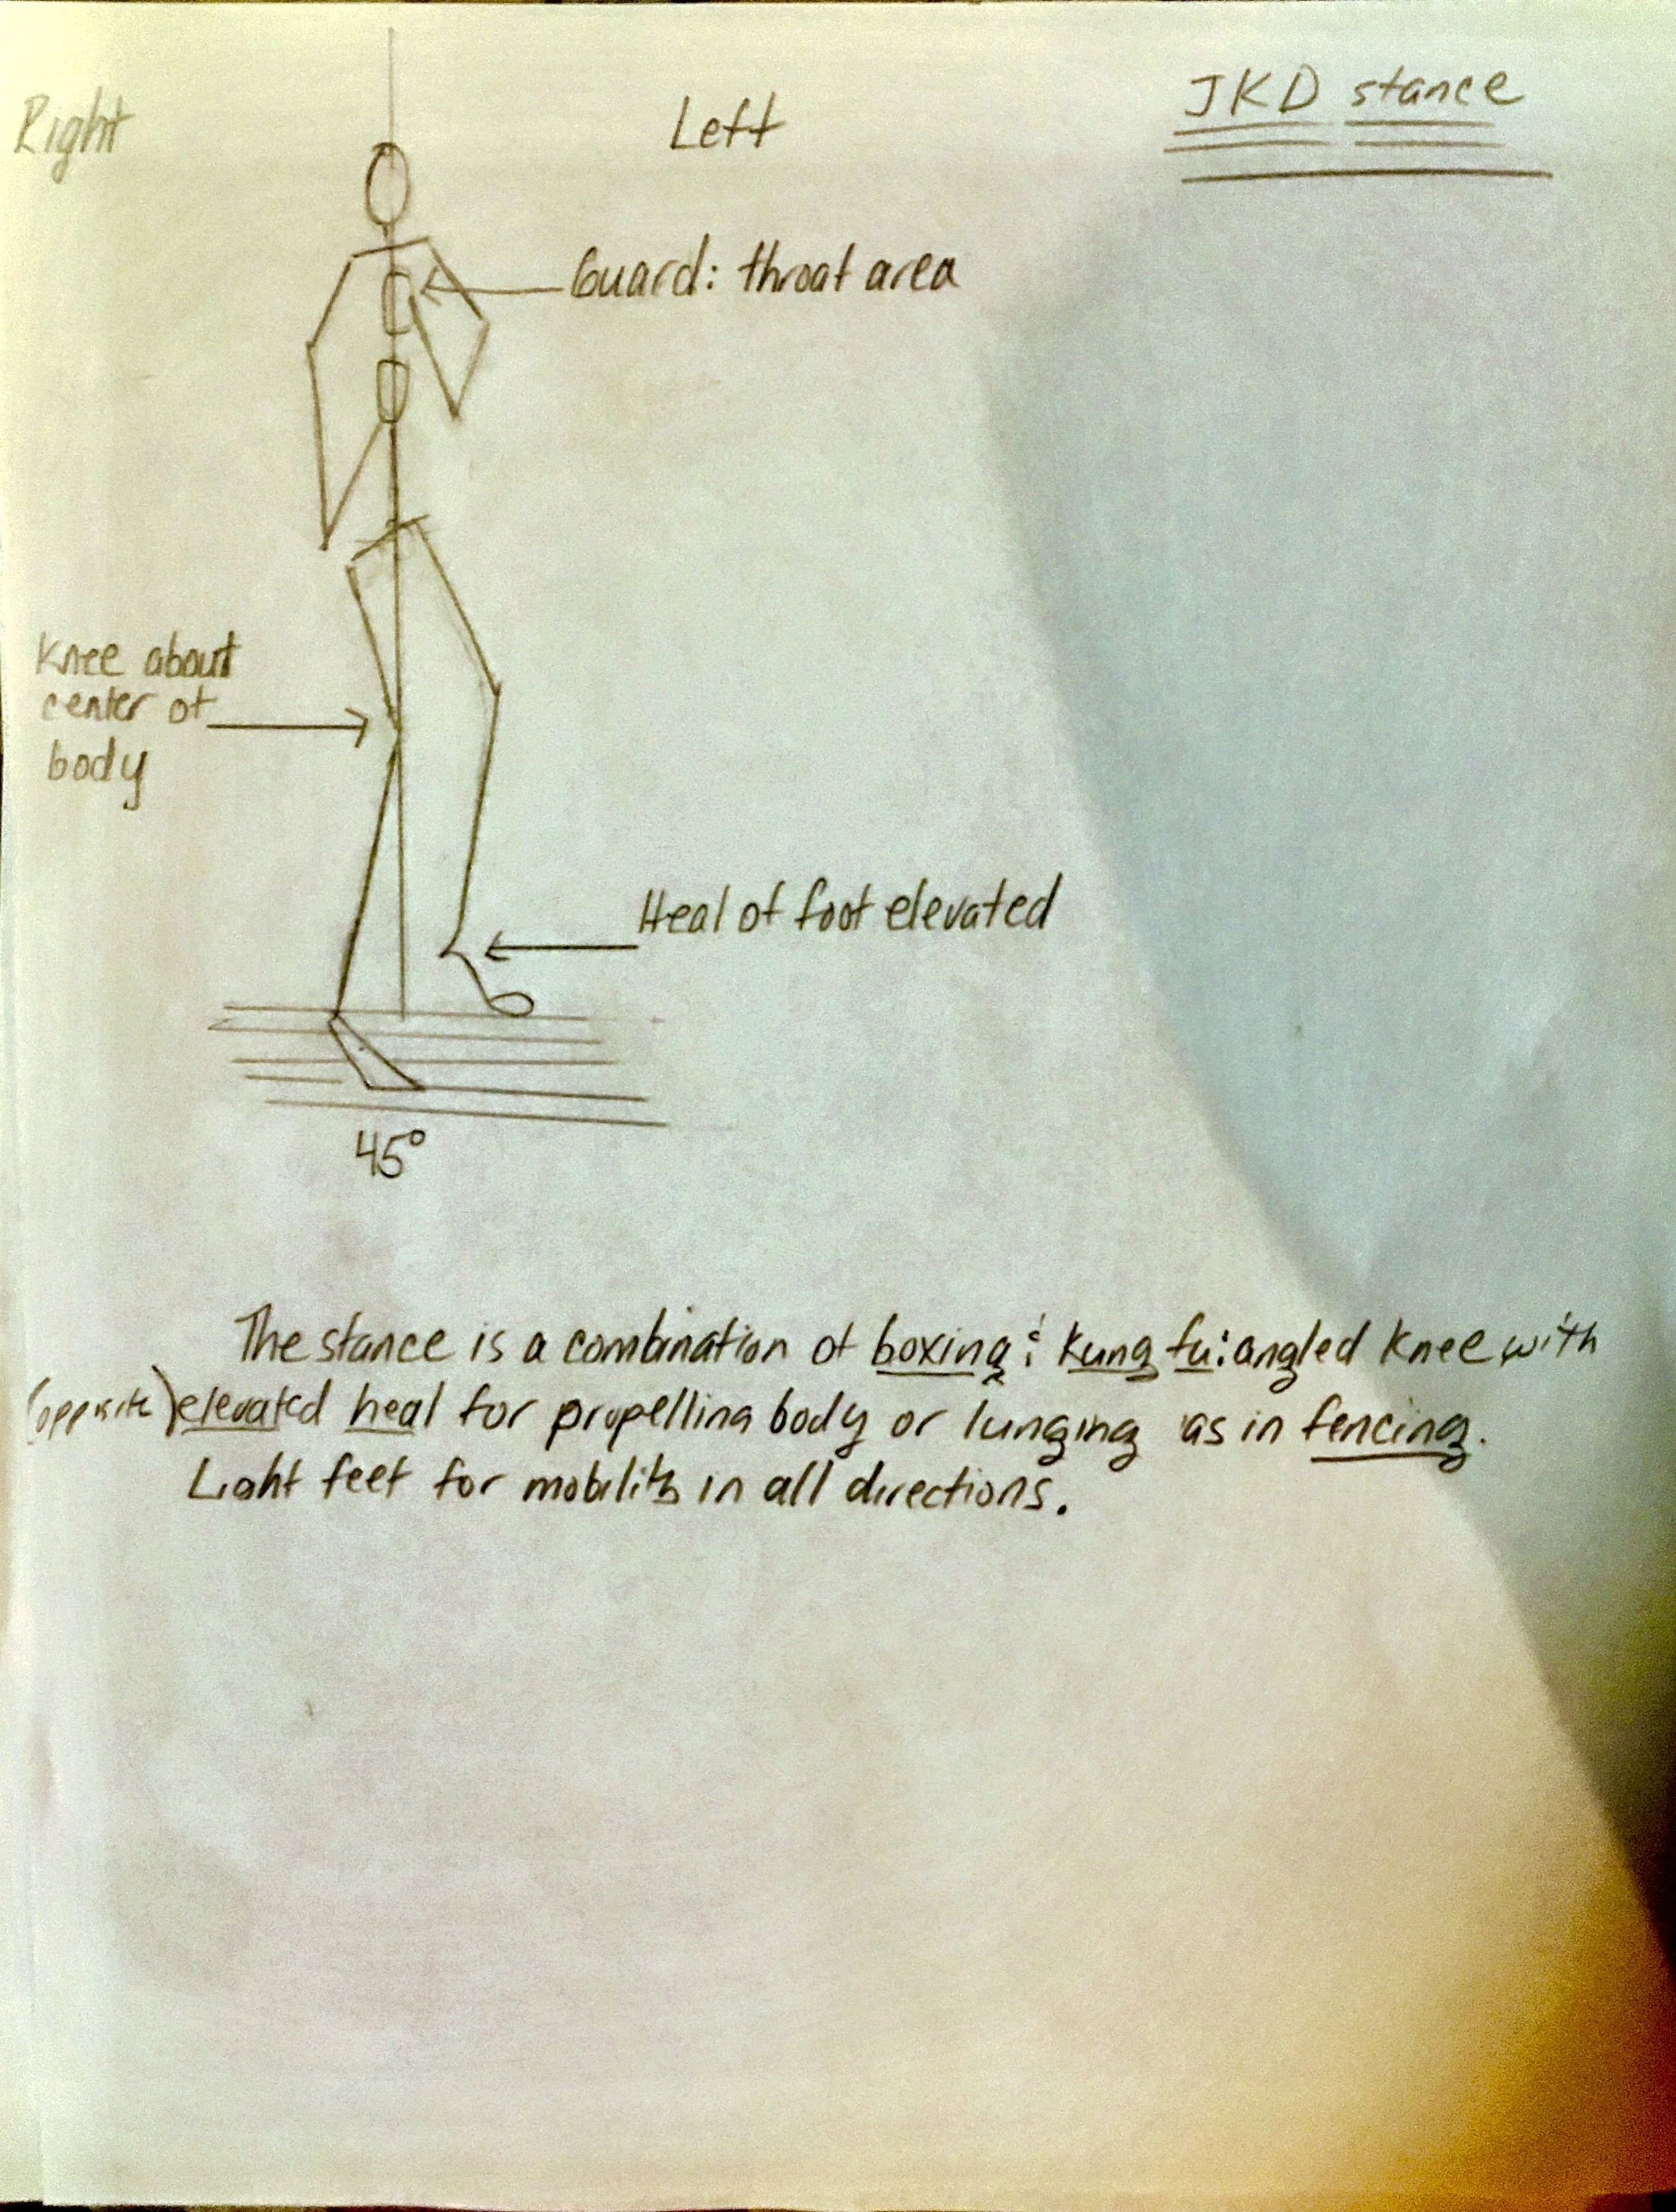 JKD stance
Right
Left
Guard: throat area
Knee about
center of
body
Heal of foot elevated
45°
The stance is a combination of boxing & kung fu: angled knee with
(opposite) elevated heal for propelling body or lunging as in fencing.
Light feet for mobility in all directions.